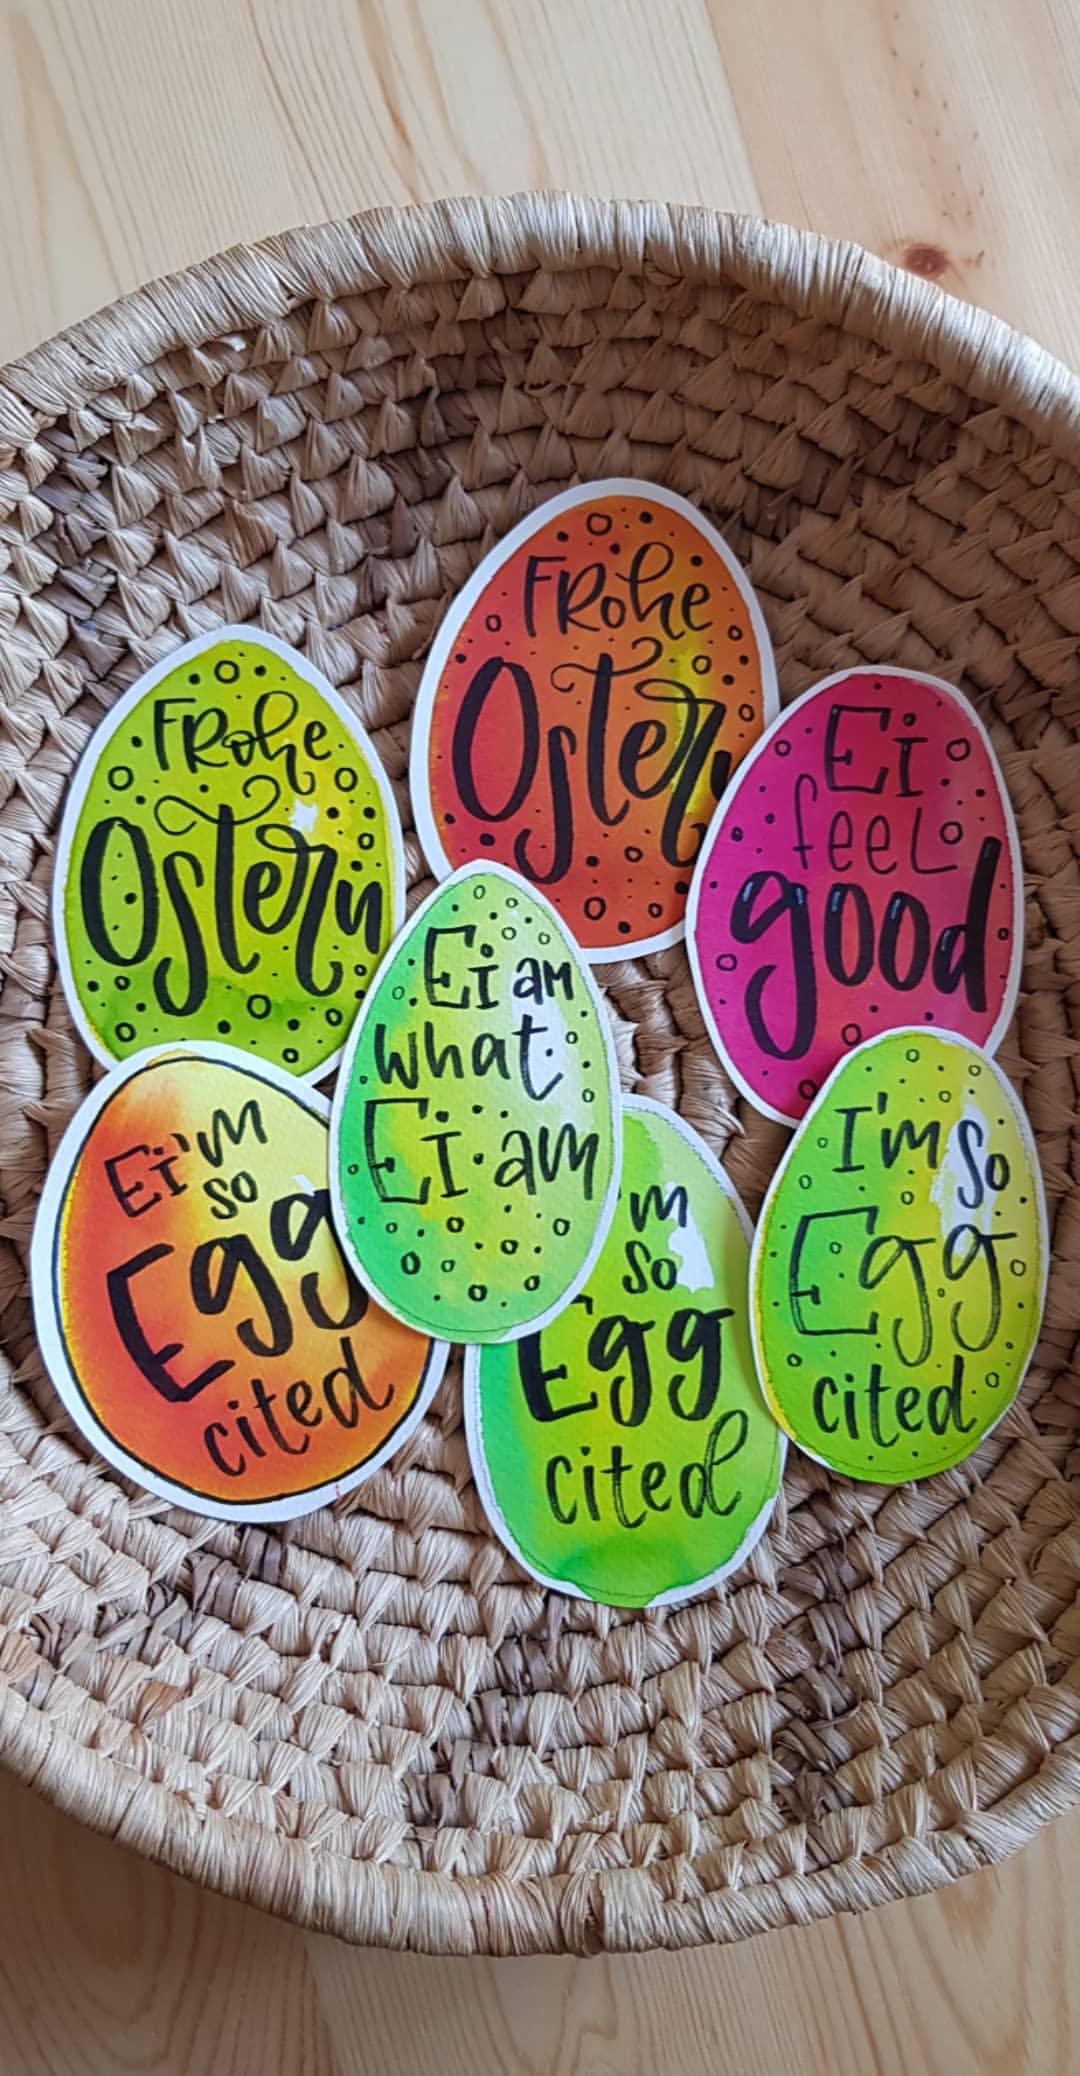 Frohe
Ostern
Frohe
Ostern
Ei
feel
good
Ei am
what
Ei am
Ei'm
so
Egg
cited
'm
so
Egg
cited
I'm so
Egg
cited